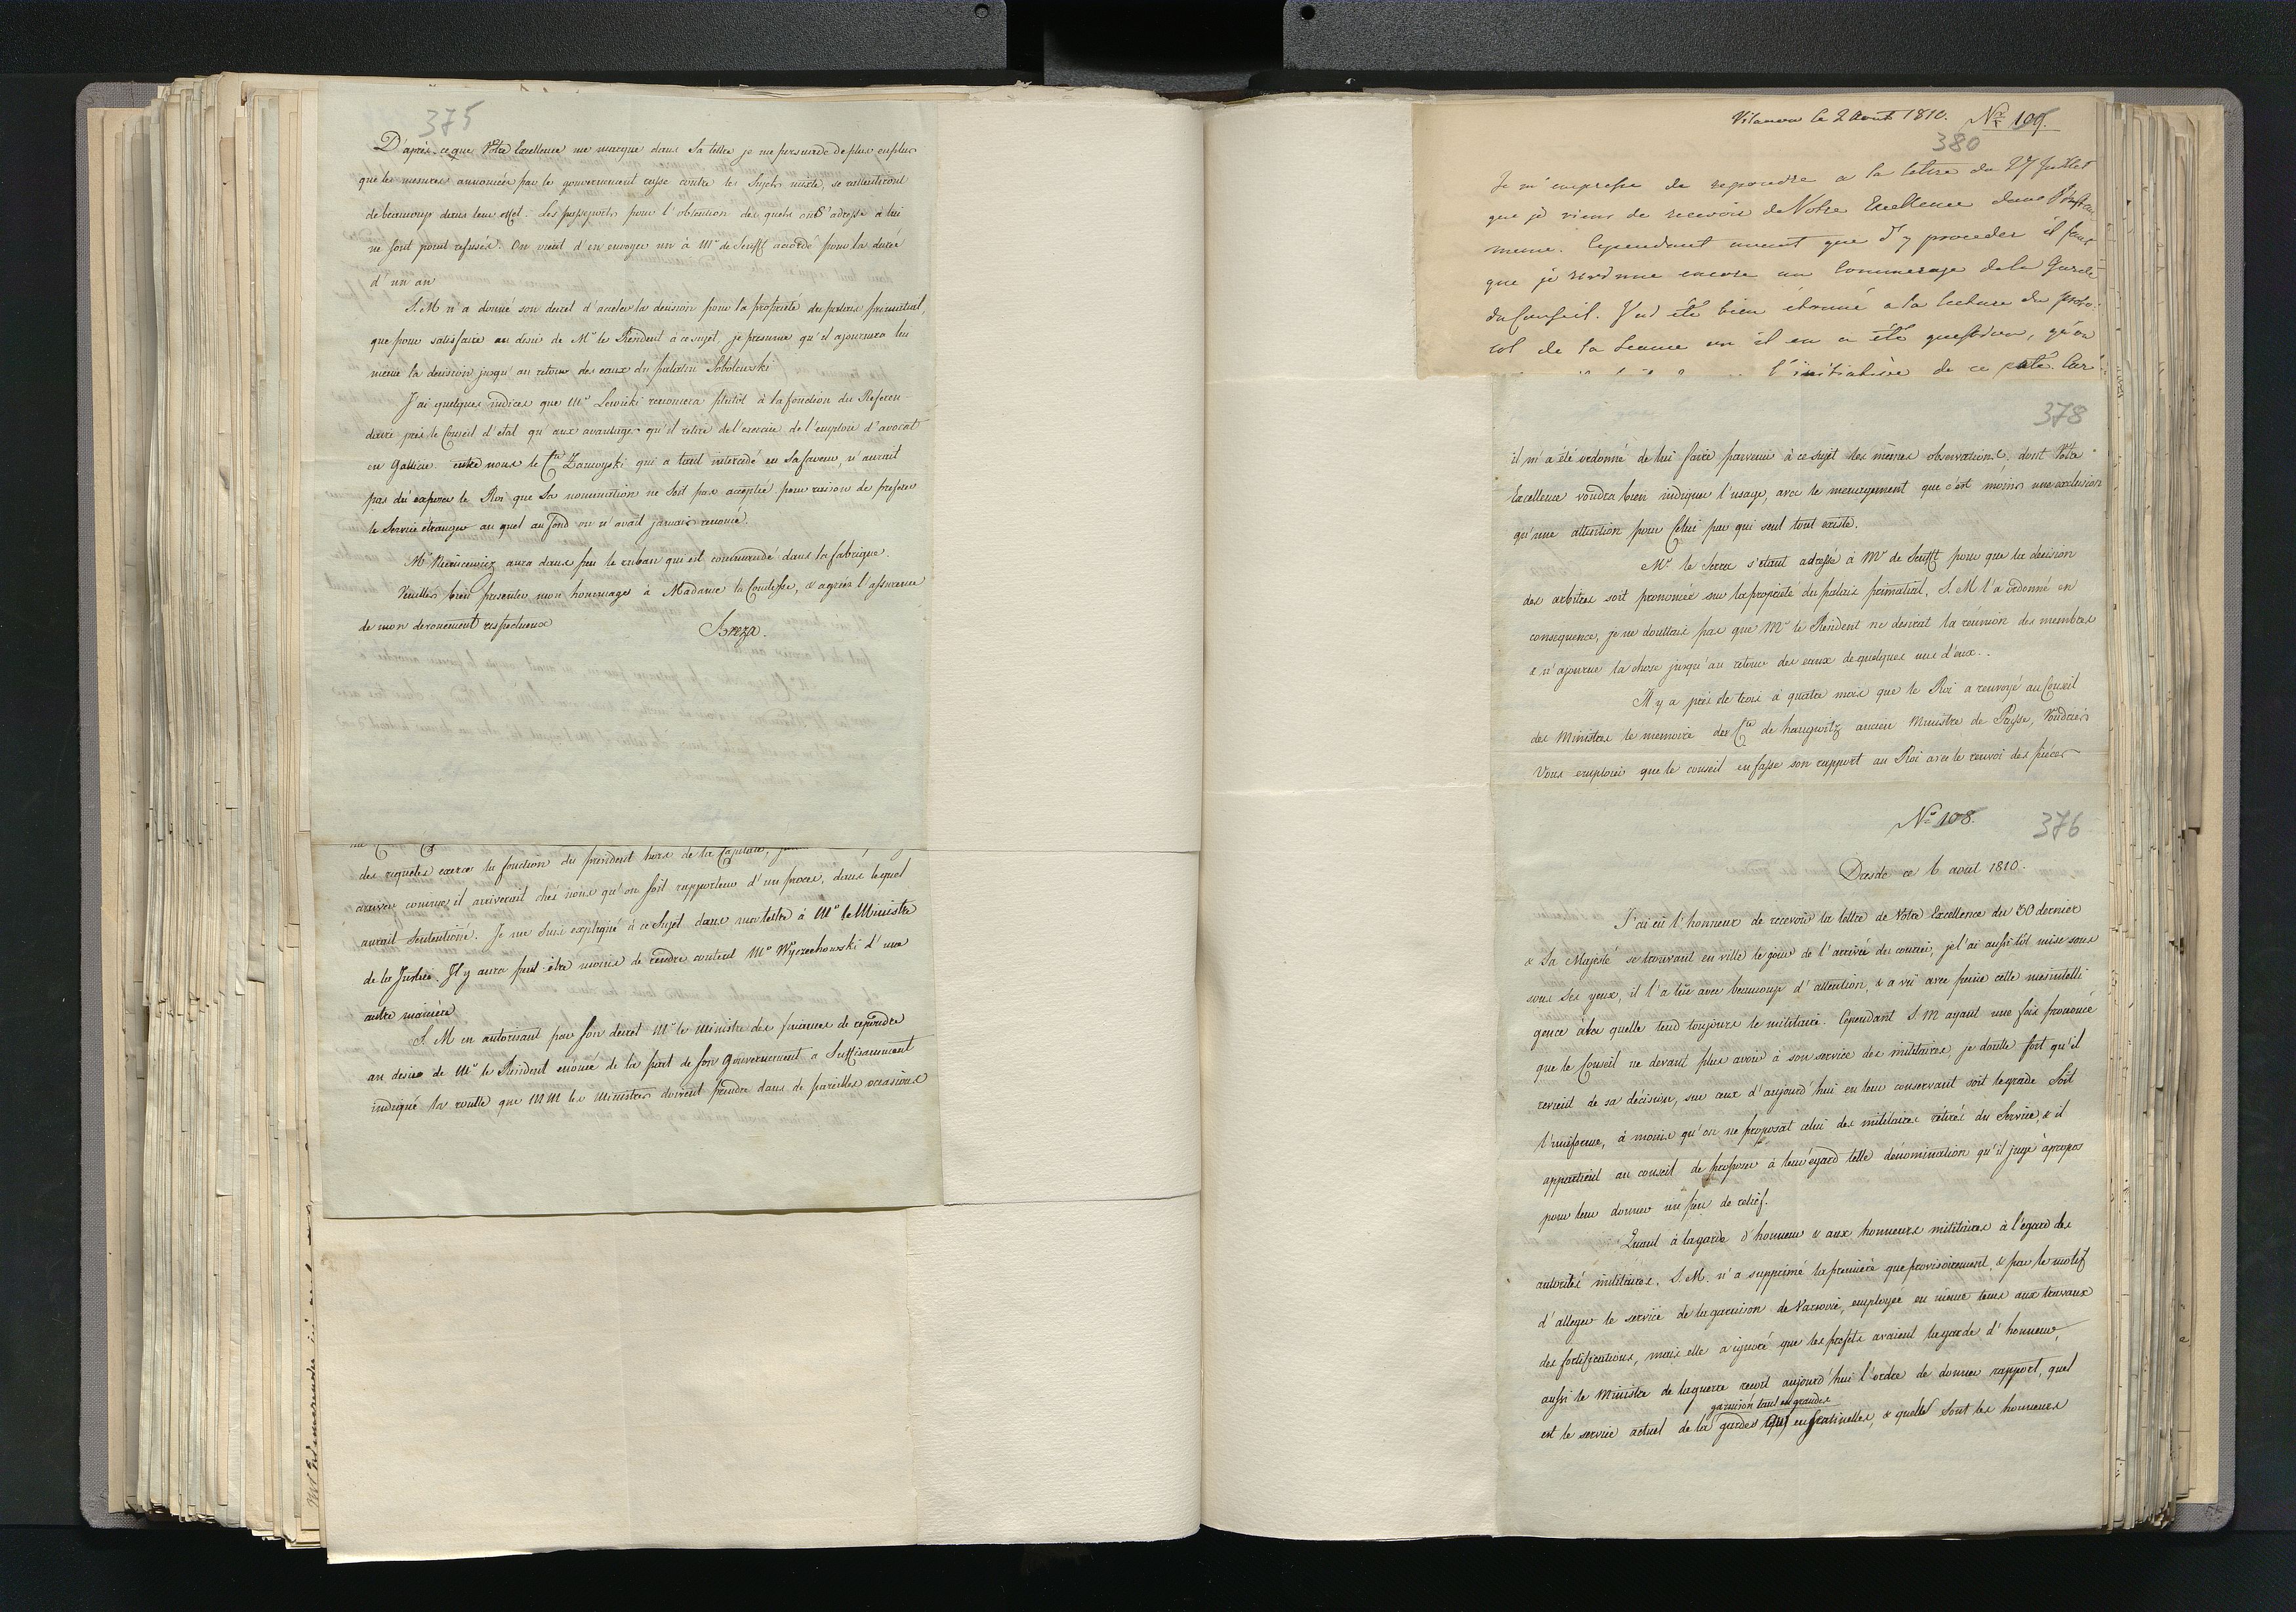 375
D'après ce que Votre Excellence me marque dans Sa lettre je me persuade de plus en plus
que les mesures annoncées par le gouvernement russe contre les Sujets mixte, se rallentiront
de beaucoup dans leur effet. Les passeports pour l'obtention des quels on S'adresse à lui
ne sont point refusés. On vient d'en envoyer un à Mr de Senfft accordé pour la durée
d'un an
S. M n'a donné son decret d'acceler la decision pour la propriété du palais primatial,
que pour satisfaire au désir de Mr le Resident à ce sujet, je presume qu'il ajournera lui
même la decision jusqu'au retour des eaux du palatin Sobolewski
J'ai quelques indices que Mr Lewicki renoncera plutôt à la fonction du Referen
daire près le Conseil d'etat qu'aux avantages qu'il retire de l'exercice de l'emploie d'avocat
en Gallicie. entre nous le Cte Zamoyski qui a tant intercedé en Sa faveur, n'aurait
pas dû exposer le Roi que Sa nomination ne Soit pas acceptée pour raison de preferer
le Service étranger au quel au fond on n'avait jamais renoncé.
Mr Niemcewicz aura dans peu le ruban qui est commandé dans la fabrique.
Veuillés bien presenter mon hommages à Madame la Comtesse, & agréer l'assurance
de mon devouement respectueux
Breza.
des requetes exerce la fonction du president hors de la Capitale,
arriver comme il arriverait chés nous qu'on soit rapporteur d'un proces, dans lequel
aurait Sententioné. Je me Suis expliqué à ce Sujet dans ma lettre à Mr le Ministre
de la Justice. Il y aura peut-être moins de rendre content Mr Wyczechowski d'une
autre manière
S. M en autorisant par Son decret Mr le Ministre des finances de repondre
au desir de Mr le Resident enoncé de la part de Son gouvernement a Suffisamment
indiqué la route que MM les Ministres doivent prendre dans de pareilles occasions
Vilanow le 2 Aout 1810. Nr 109.
380
Je m'empresse de repondre a la lettre du 27 Juillet
que je viens de recevoir de Votre Excellence dans l'instant
meme. Cependant avant que d'y proceder il faut
que je revienne encore un Commerage de la Garde
du Conseil. J'ai été bien étonné a la lecture du proto-
col de la Seance ou il en a été question, qu'on
l'initiative de ce coté. Car
378
il m'a été ordonné de lui faire parvenir à ce sujet les mêmes observations, dont Votre
Excellence voudra bien indiquer l'usage, avec le menagement que c'est moins une exclusion
qu'une attention pour Celui par qui seul tout existe.
Mr. le Serra s'étant adressé à Mr de Senfft pour que la decision
des arbitres soit prononcée sur la propriété du palais primatial, S. M l'a ordonné en
consequence, je ne doutais pas que Mr le Resident ne desirat la réunion des membres
& n'ajourne la chose jusqu'au retour des eaux de quelques uns d'eux.
Il y a près de trois à quatre mois que le Roi a renvoyé au Conseil
des Ministres le memoire du Cte de haugwitz ancien Ministre de Prusse, Voudriés
Vous emploier que le conseil en fasse son rapport au Roi avec le renvoi des pièces
No 108. 376
Dresde ce 6 aout 1810.
J'ai eu l'honneur de recevoir la lettre de Votre Excellence du 30 dernier
& Sa Majesté se trouvant en ville le jour de l'arrivée du courier, je l'ai aussitôt mise sous
sous Ses yeux, il l'a lüe avec beaucoup d'attention, & a vû avec peine cette mesintelli
gence avec quelle tend toujours le militaire. Cependant S. M ayant une fois prononcé
que le Conseil ne devant plus avoir à son service des militaires, je doutte fort qu'il
revient de sa décision, sur ceux d'aujourd'hui en leur conservant soit le grade Soit
l'uniforme, à moins qu'on ne proposat celui des militaires rétirés du Service, & il
appartient au conseil de proposer à leur egard telle denomination qu'il juge à propos
pour leur donner un peu de relief.
Quant à la garde d'honneur & aux honneurs militaires à l'égard des
autorités militaires, S. M. n'a supprimé la première que provisoirement, & par le motif
d'alleger le service de la garnison de Varsovie, employée en même tems aux travaux
des fortifications, mais elle a ignoré que les prefets avaient la garde d'honneur,
aussi le Ministre de la guerre reçoit aujourd'hui l'ordre de donner rapport, quel
garnison tant en grandes
est le service actuel de la gardes en Sentinelles, & quelle sont les honneurs